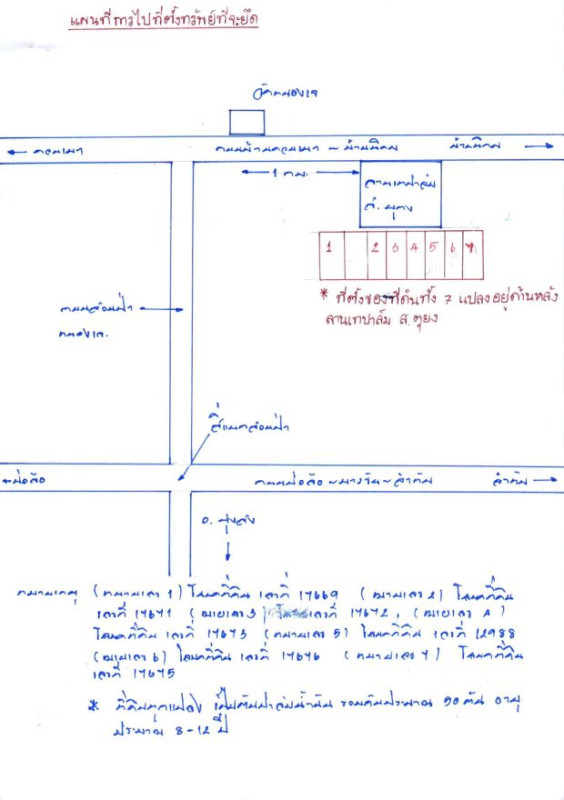 แผนที่การไปที่ตั้งทรัพย์ที่จะยึด
วัดหนองเจ
← ควนเมา
ถนนบ้านควนเมา ~ บ้านนิคม
บ้านนิคม →
1 กม.
ลานเทปาล์ม
ส.
1 2 3 4 5 6 7
* ที่ตั้งของที่ดินทั้ง 7 แปลงอยู่ด้านหลัง
ลานเทปาล์ม ส.ตุยง
ถนน
หนองเจ
สี่แยก
← บ่อล้อ
ถนนบ่อล้อ ~ ~ ลำทับ
ลำทับ →
อ. ทุ่งสง
หมายเหตุ (หมายเลข 1) โฉนดที่ดิน เลขที่ 17669 (หมายเลข 2) โฉนดที่ดิน
เลขที่ 17671 (หมายเลข 3) เลขที่ 17672, (หมายเลข 4)
โฉนดที่ดิน เลขที่ 17673 (หมายเลข 5) โฉนดที่ดิน เลขที่ 12988
(หมายเลข 6) โฉนดที่ดิน เลขที่ 17676 (หมายเลข 7) โฉนดที่ดิน
เลขที่ 17675
* ที่ดินทุกแปลง เป็นต้นปาล์มน้ำมัน รวมต้นประมาณ 50 ต้น อายุ
ประมาณ 8-12 ปี